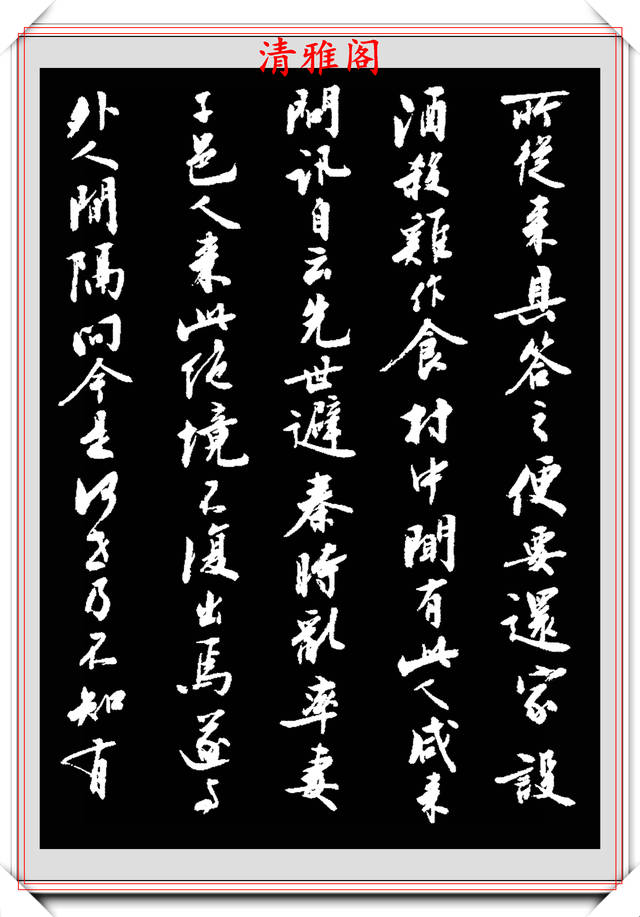 清雅阁
所從来具答之便要還家設
酒殺雞作食村中聞有此人咸来
問訊自云先世避秦時亂率妻
子邑人来此絕境不復出焉遂与
外人間隔问今是何世乃不知有